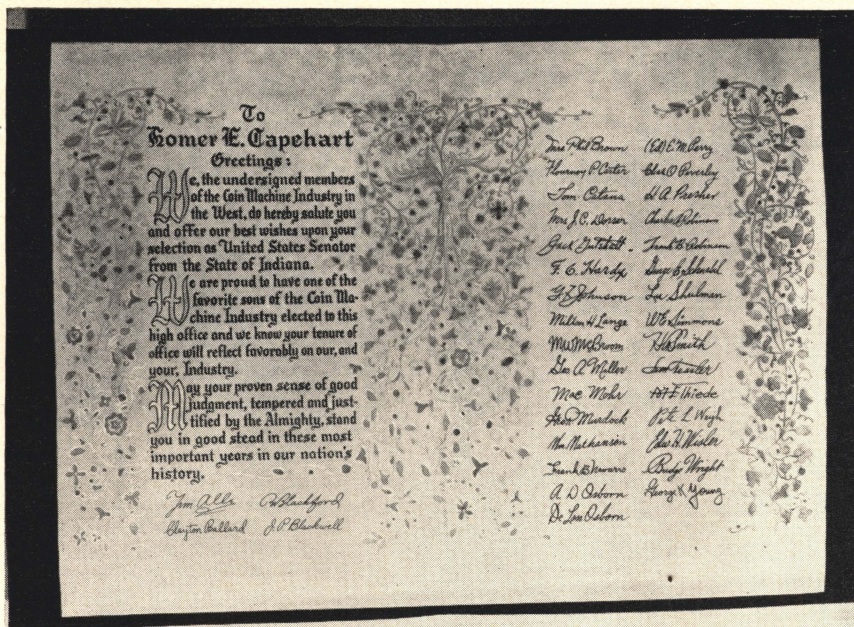 To
Homer E. Capehart
Greetings:
We, the undersigned members
of the Coin Machine Industry in
the West, do hereby salute you
and offer our best wishes upon your
selection as United States Senator
from the State of Indiana.
We are proud to have one of the
favorite sons of the Coin Ma-
chine Industry elected to this
high office and we know your tenure of
office will reflect favorably on our, and
your, Industry.
May your proven sense of good
judgment, tempered and just-
tified by the Almighty, stand
you in good stead in these most
important years in our nation's
history.
Jim Alls Blackford
Clayton Ballard J. P. Blackwell
Phil Brown
P Carter
Tom Catana
Mrs. J. C.
Jack
F. C. Hardy
Johnson
Milton H Lange
McBroom
Geo A Miller
Mac Mohr
Murdock
Frank Navarro
A D Osborn
De Lon Osborn
(Ed) E M Perry
H A
Charles Robinson
Frank E Robinson
Shulman
W E Simmons
Smith
Thiede
Budge Wright
George K Young